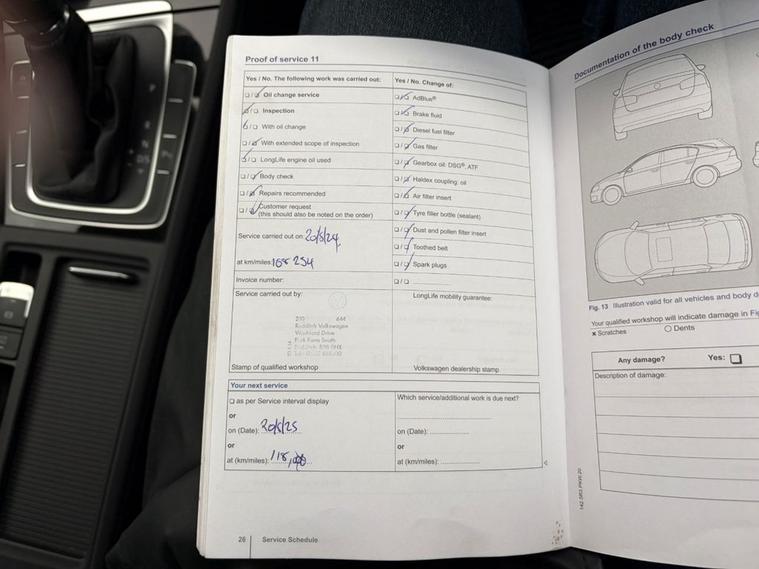 Proof of service 11
Yes / No. The following work was carried out:
Oil change service
Inspection
With oil change
With extended scope of inspection
LongLife engine oil used
Body check
Repairs recommended
Customer request
(this should also be noted on the order)
Service carried out on 20/5/24
at km/miles:
Invoice number:
Service carried out by:
Redditch Volkswagen
Washford Drive
Park Farm South
Stamp of qualified workshop
Yes / No. Change of:
AdBlue®
Brake fluid
Diesel fuel filter
Gas filter
Gearbox oil: DSG®, ATF
Haldex coupling: oil
Air filter insert
Tyre filler bottle (sealant)
Dust and pollen filter insert
Toothed belt
Spark plugs
LongLife mobility guarantee:
Volkswagen dealership stamp
Your next service
as per Service interval display
or
on (Date): 20/5/25
or
at (km/miles): 118,000
Which service/additional work is due next?
on (Date):
or
at (km/miles):
26 Service Schedule
Documentation of the body check
Fig. 13 Illustration valid for all vehicles and body
Your qualified workshop will indicate damage in
× Scratches
O Dents
Any damage? Yes:
Description of damage: